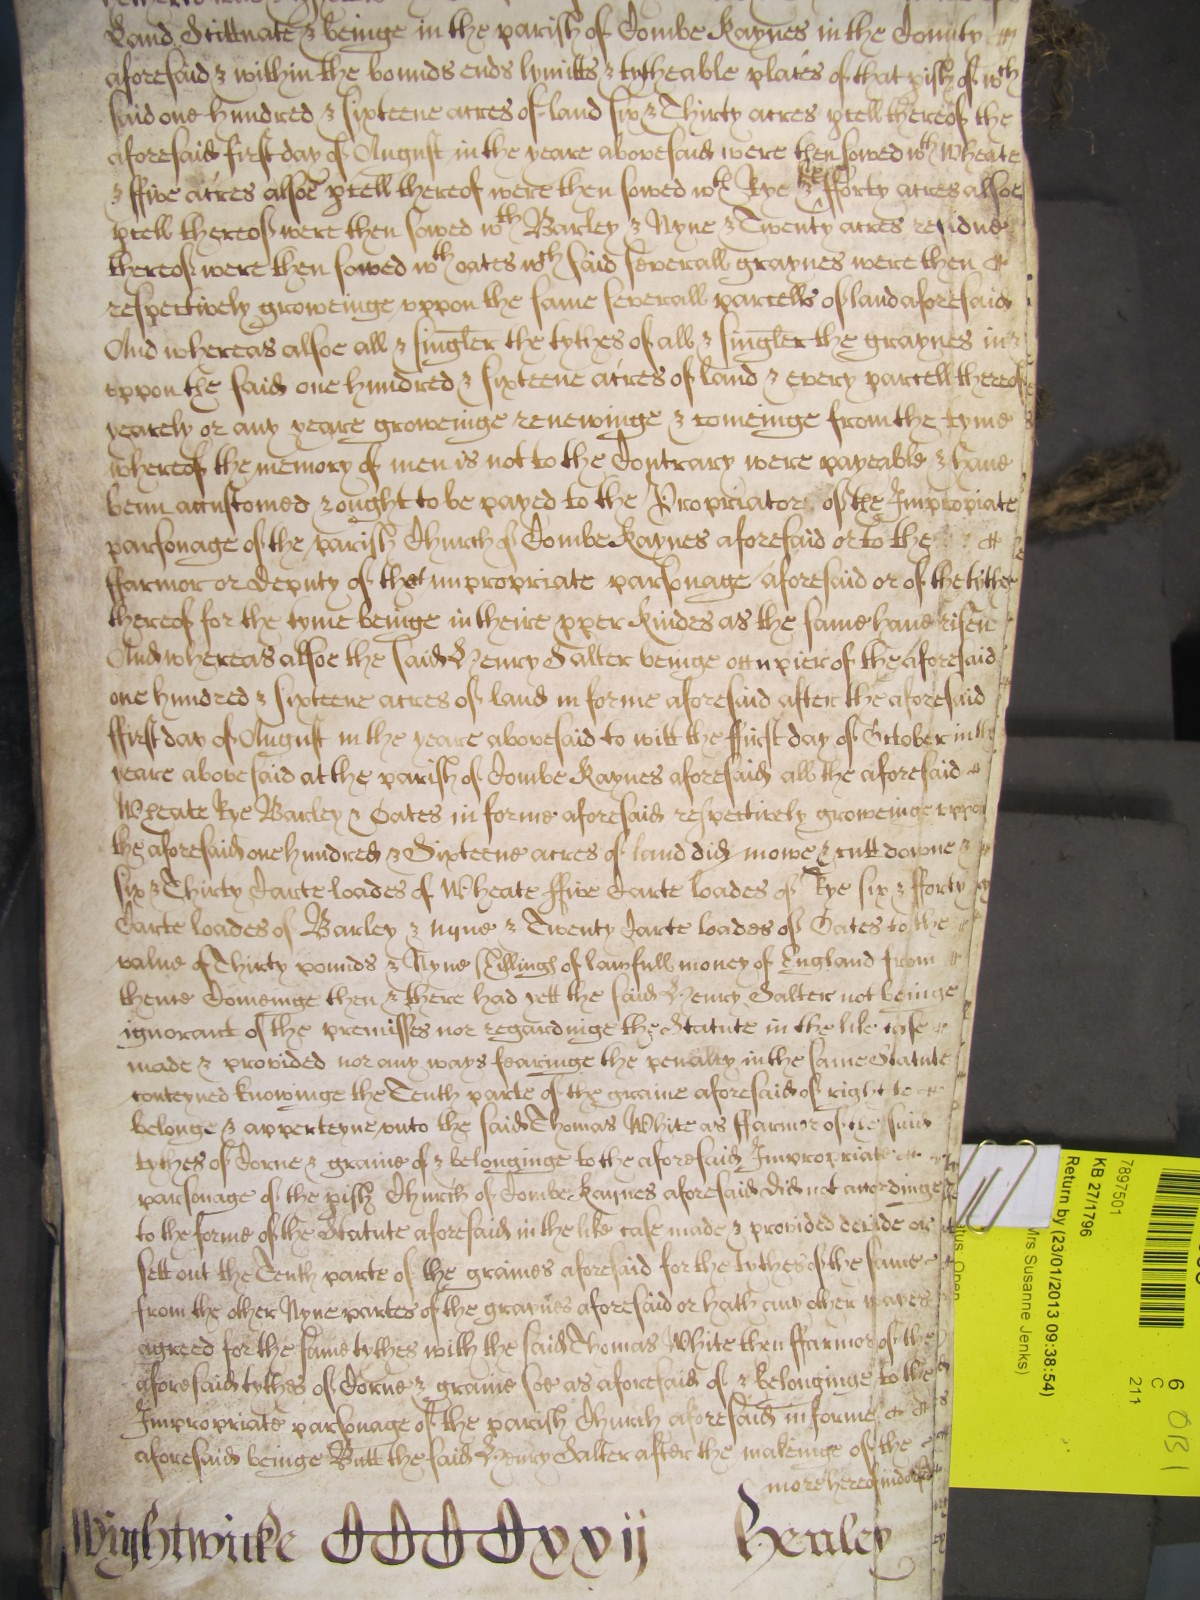 Land Scittuate & beinge in the parish of Combe Kaynes in the County
aforesaid & within the bounds ends lymitts & tytheable places of that pish of wch
said one hundred & sixteene acres of land six & Thirty acres pcell thereof the
aforesaid first day of August in the yeare abovesaid were then sowed wth Wheate
& ffive acres alsoe pcell thereof were then sowed wth Rye & fforty acres alsoe
pcell thereof were then sowed wth Barley & Nyne & Twenty acres residue
thereof were then sowed wth oates wch said severall graynes were then
respectively groweinge uppon the same severall parcells of land aforesaid
And whereas alsoe all & singler the tythes of all & singler the graynes in &
uppon the said one hundred & sixteene acres of land & every parcell thereof
yearely or any yeare groweinge renewinge & comeinge from the tyme
whereof the memory of men is not to the Contrary were payeable & have
benn accustomed & ought to be payed to the Propriator of the Impropriate
parsonage of the parish Church of Combe Kaynes aforesaid or to the
ffarmor or deputy of that impropriate parsonage aforesaid or of the tythes
thereof for the tyme beinge in theire pper kindes as the same have risen
And whereas alsoe the said Henry Salter beinge occupier of the aforesaid
one hundred & sixteene acres of land in forme aforesaid after the aforesaid
ffirst day of August in the yeare abovesaid to witt the ffirst day of October in the
yeare abovesaid at the parish of Combe Kaynes aforesaid all the aforesaid
Wheate Rye Barley & Oates in forme aforesaid respectively groweinge uppon
the aforesaid one hundred & Sixteene acres of land did mowe & cutt downe &
six & Thirty Carte loades of Wheate ffive Carte loades of Rye six & fforty
Carte loades of Barley & nyne & Twenty Carte loades of Oates to the
value of Thirty pounds & Nyne shillings of lawfull money of England from
thence Comeinge then & there had yett the said Henry Salter not beinge
ignorant of the premisses nor regardinge the Statute in the like case
made & provided nor any ways fearinge the penalty in the same Statute
conteyned knowinge the Tenth parte of the graine aforesaid of right to
belonge & apperteyne unto the said Thomas White as ffarmor of the said
tythes of Corne & graine of & belonginge to the aforesaid Impropriate
parsonage of the pish Church of Combe Kaynes aforesaid did not accordinge
to the forme of the Statute aforesaid in the like case made & provided decide or
sett out the Tenth parte of the graines aforesaid for the tythes of the same
from the other Nyne partes of the graynes aforesaid or hath any other wayes
agreed for the same tythes with the said Thomas White then ffarmor of the
aforesaid tythes of Corne & graine soe as aforesaid of & belonginge to the
Impropriate parsonage of the parish Church aforesaid in forme
aforesaid beinge Butt the said Henry Salter after the makeinge of the
more hereof indorsed
Wightwicke CCCCxxvij Henley
7897501
KB 27/1796
Return by (23/01/2013 09:38:54)
Mrs Susanne Jenks)
Open
6
C
211